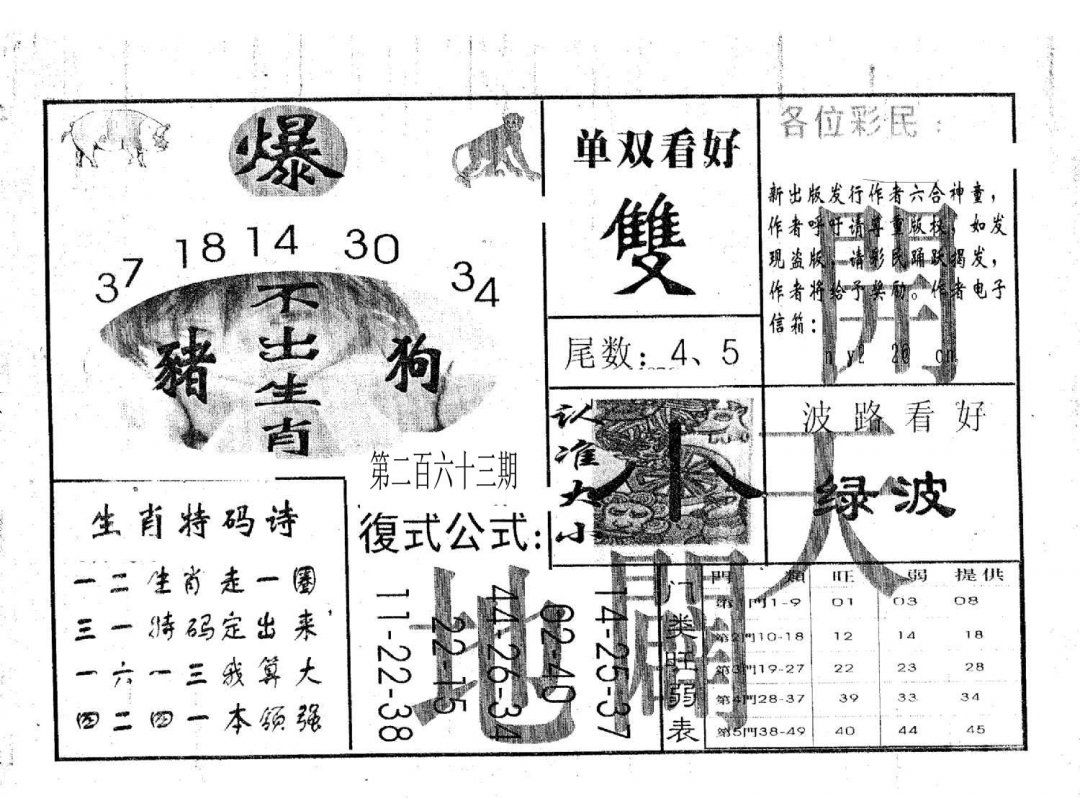 爆
37 18 14 30 34
不出生肖
豬
狗
第二百六十三期
单双看好
雙
尾数：4、5
认准大小
小
各位彩民：
新出版发行作者六合神童，
作者呼吁请尊重版权，如发
现盗版，请彩民踊跃揭发，
作者将给予奖励。作者电子
信箱：
開
波路看好
绿波
天
生肖特码诗
一二生肖走一圈
三一特码定出来
一六一三我算大
四二四一本领强
復式公式:
11-22-38
22-15
44-26-34
02-40
14-25-37
地
門类旺弱表
門 類 旺 弱 提供
第1門1-9 01 03 08
第2門10-18 12 14 18
第3門19-27 22 23 28
第4門28-37 39 33 34
第5門38-49 40 44 45